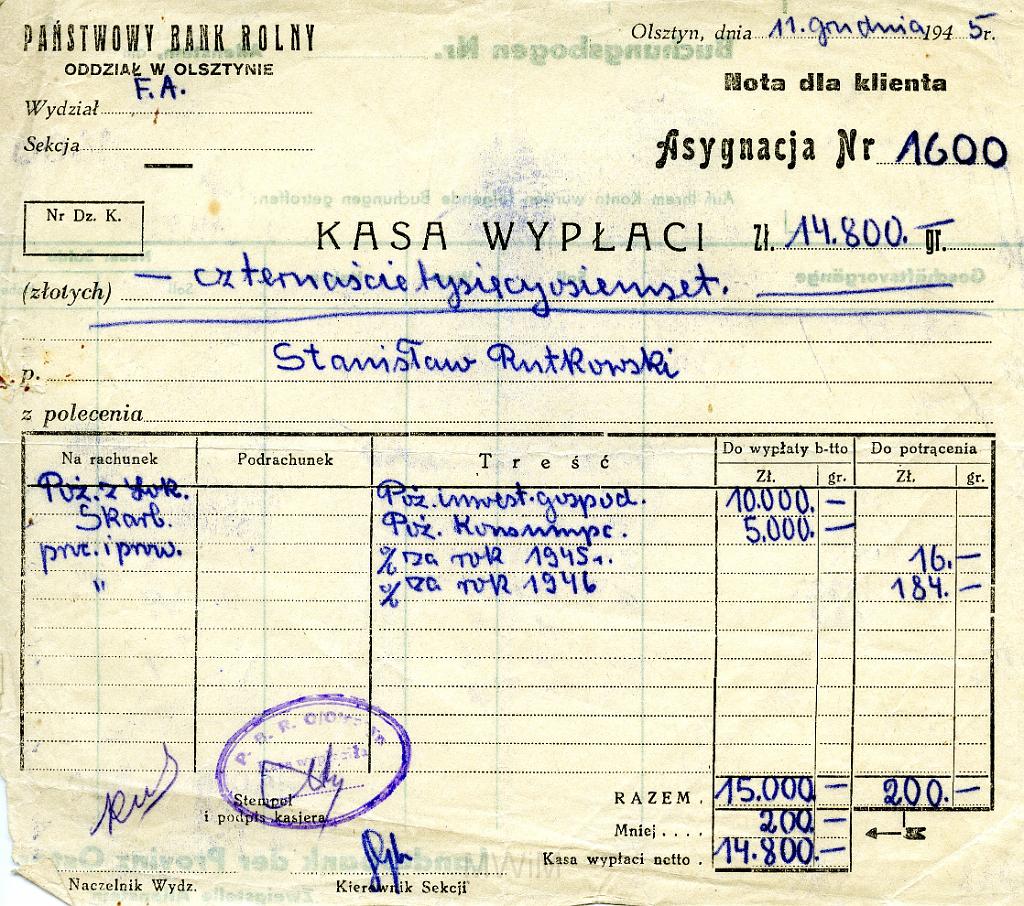 PAŃSTWOWY BANK ROLNY
ODDZIAŁ W OLSZTYNIE
Olsztyn, dnia 11. grudnia 1945 r.
Nota dla klienta
Wydział F.A.
Sekcja
Asygnacja Nr 1600
Nr Dz. K.
KASA WYPŁACI zł. 14.800. — gr.
(złotych) — czternaście tysięcy osiemset. —
p. Stanisław Rutkowski
z polecenia
Na rachunek Podrachunek Treść Do wypłaty b-tto Do potrącenia
Zł. gr. Zł. gr.
Poż. z Lok. Poż. inwest. gospod. 10.000. —
Skarb. Poż. Konsumpc. 5.000. —
proc. i prow. % za rok 1945 r. 16. —
" % za rok 1946 184. —
P. B. R.
Stempel
i podpis kasjera
RAZEM. 15.000 — 200. —
Mniej.... 200. —
Kasa wypłaci netto. 14.800. —
Naczelnik Wydz. Kierownik Sekcji
Buchungsbogen Nr.
Auf Ihrem Konto wurden folgende Buchungen getroffen:
Geschäftsvorgänge
der Provinz